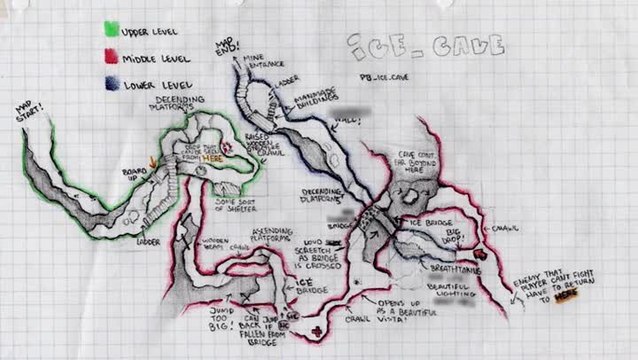 UPPER LEVEL
MIDDLE LEVEL
LOWER LEVEL
MAP
END!
MINE
ENTRANCE
ICE_CAVE
PB_ICE_CAVE
LADDER
MANMADE
BUILDINGS
WALL!
MAP
START!
DECENDING
PLATFORMS
RAISED
WOODEN
CRAWL
DROP THAT
CAN BE SEEN
FROM HERE
BOARD
UP
SOME SORT
OF SHELTER
LADDER
CAVE CONT
FAR BEYOND
HERE
DECENDING
PLATFORMS
BRIDGE
ICE BRIDGE
BIG
DROP!
CRAWL
WOODEN
BEAM
CRAWL
ASCENDING
PLATFORMS
LOUD
SCREETCH
AS BRIDGE
IS CROSSED
BREATHTAKING
BEAUTIFUL
LIGHTING
ENEMY THAT
PLAYER CAN'T FIGHT
HAVE TO RETURN
TO HERE
ICE
BRIDGE
JUMP
TOO
BIG!
CAN JUMP
BACK IF
FALLEN FROM
BRIDGE
CRAWL
OPENS UP
AS A BEAUTIFUL
VISTA!